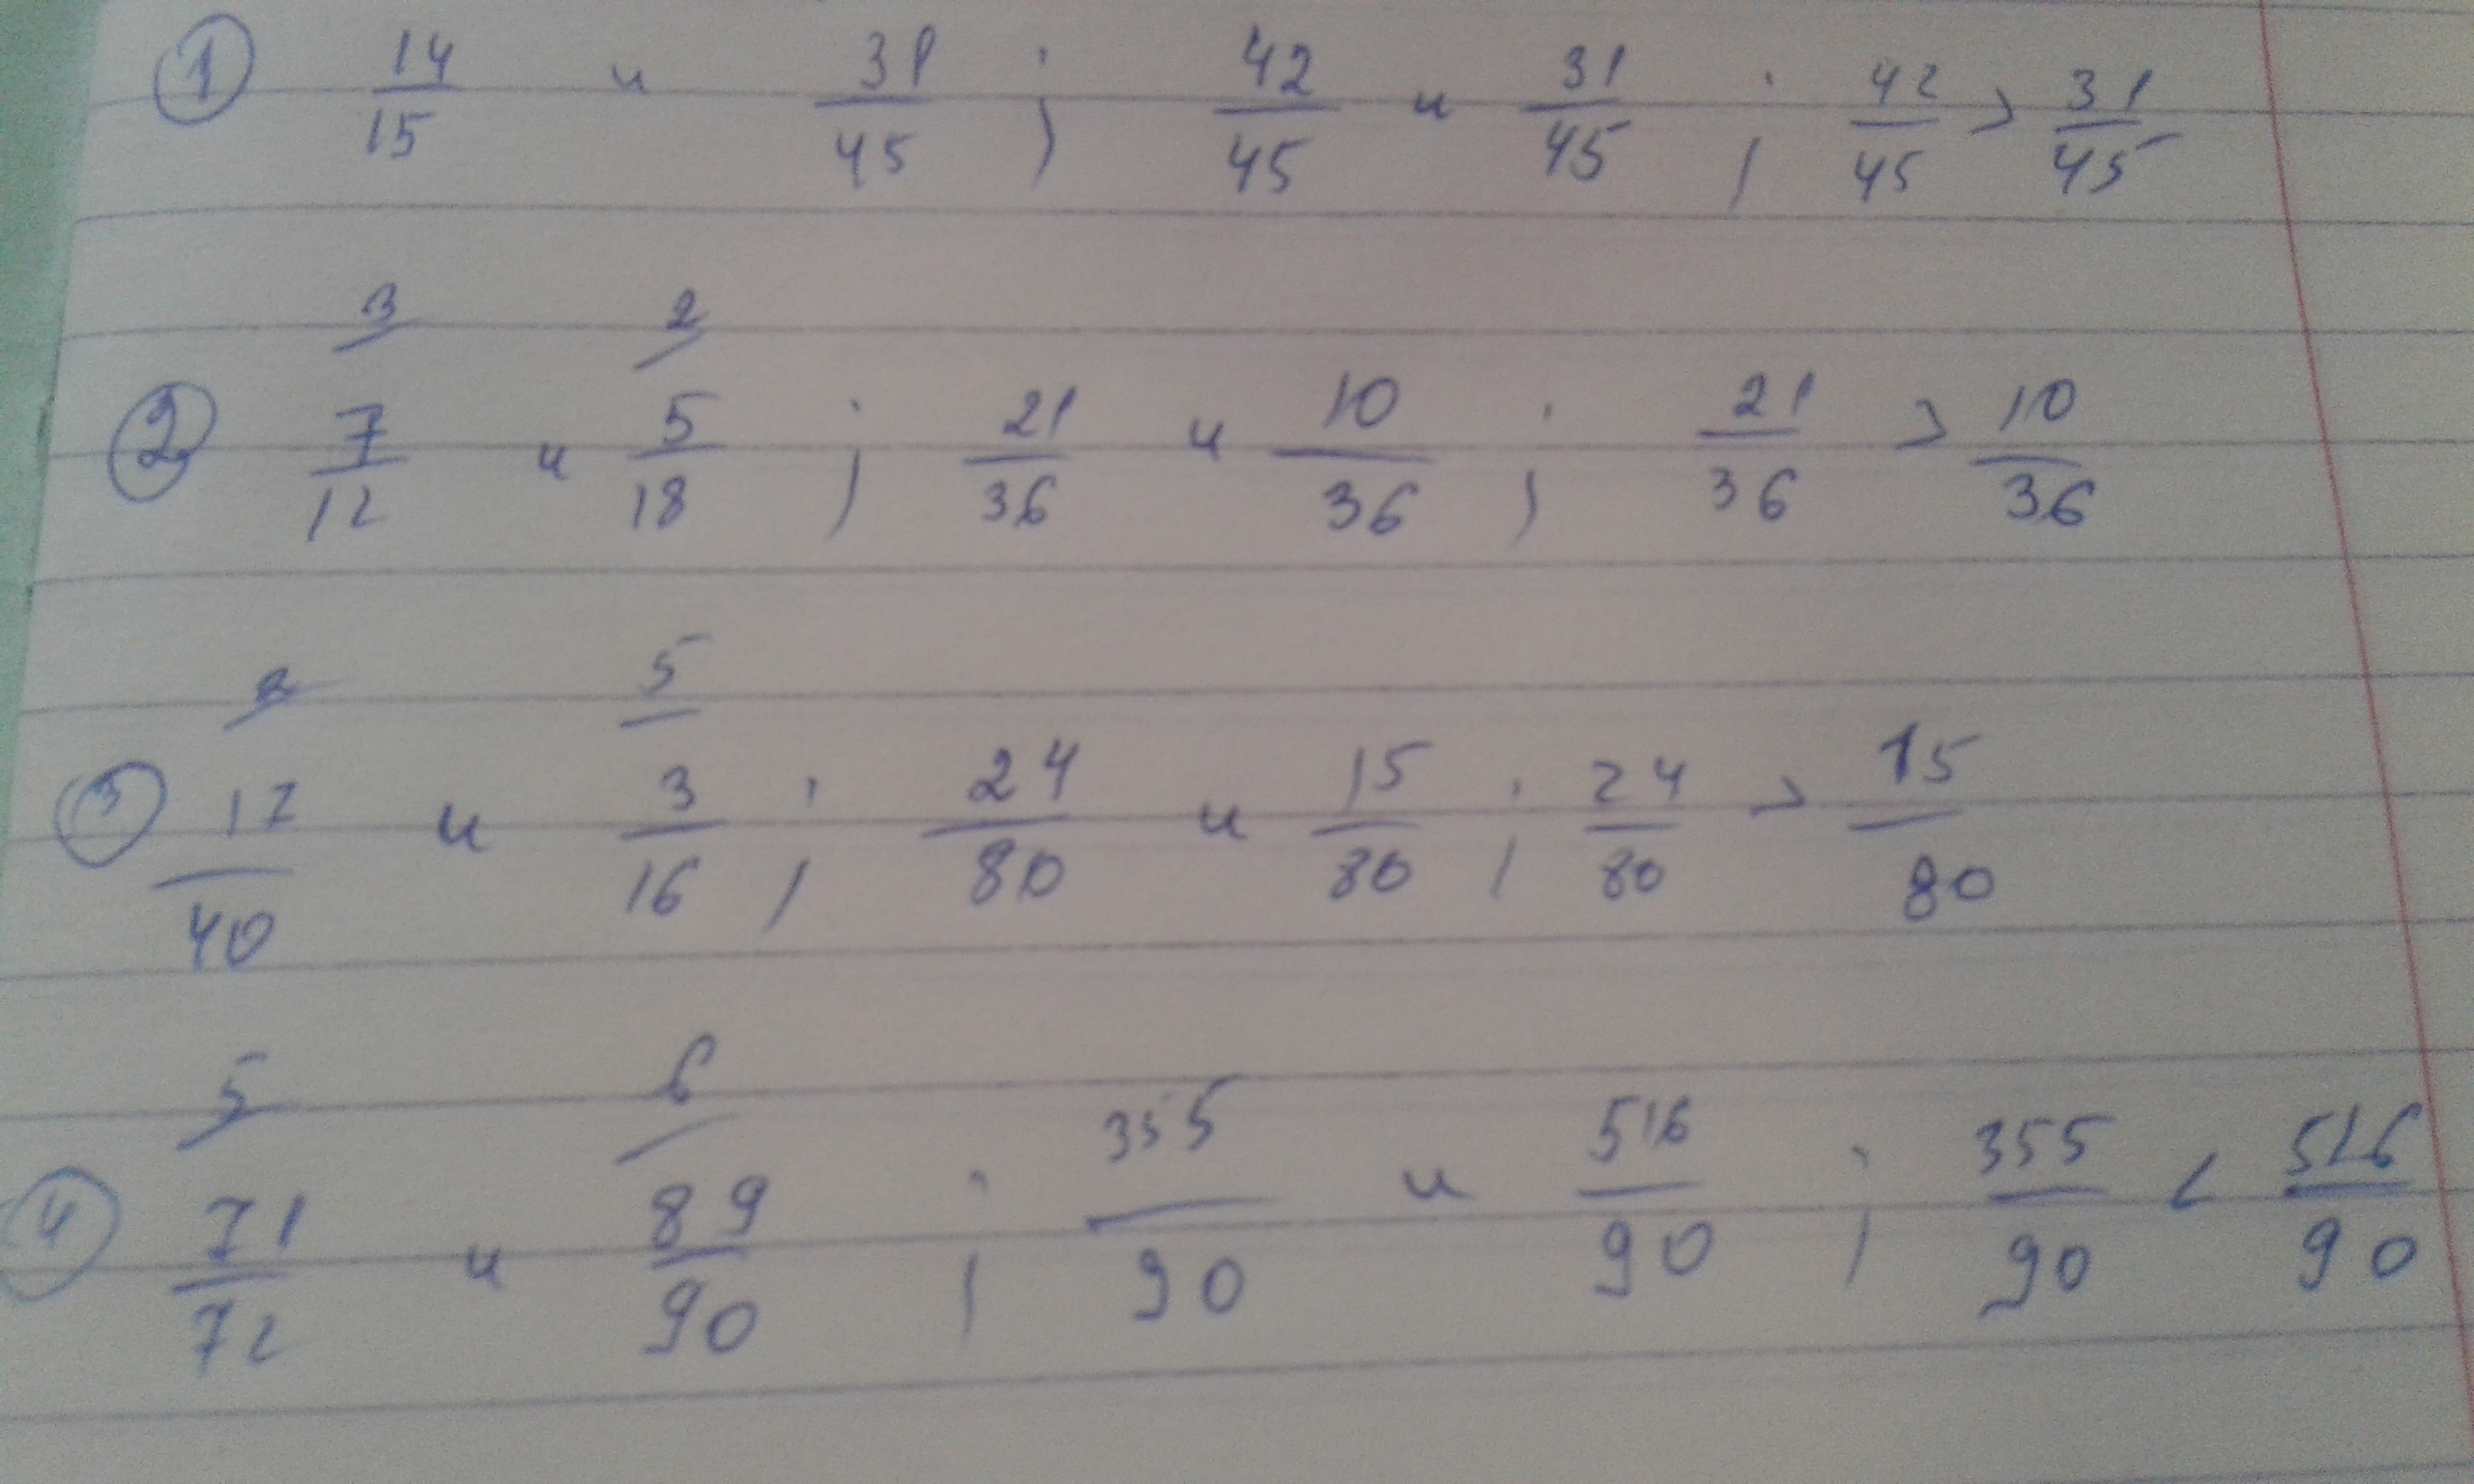 ① 14/15 и 31/45 ; 42/45 и 31/45 ; 42/45 > 31/45
3 2
② 7/12 и 5/18 ; 21/36 и 10/36 ; 21/36 > 10/36
2 5
③ 12/40 и 3/16 ; 24/80 и 15/80 ; 24/80 > 15/80
5 6
④ 71/72 и 89/90 ; 355/90 и 516/90 ; 355/90 < 516/90